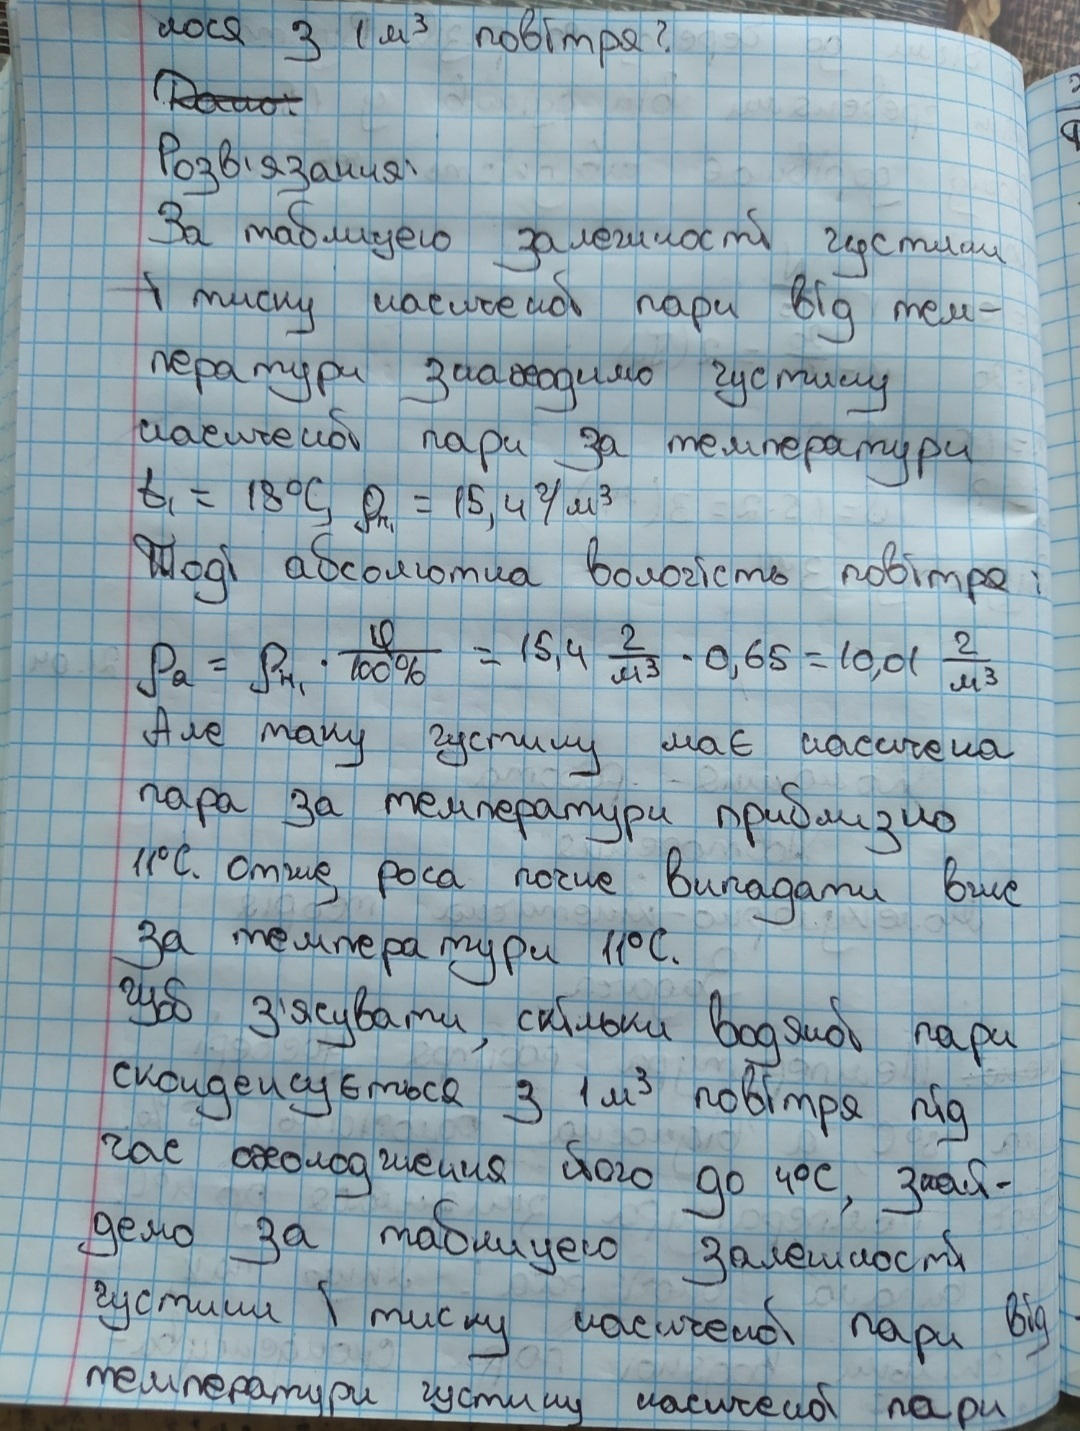 лося з 1 м³ повітря?
Дано:
Розв'язання:
За таблицею залежності густини
і тиску насиченої пари від тем-
ператури знаходимо густину
насиченої пари за температури
t₁ = 18°C, ρн₁ = 15,4 г/м³
Тоді абсолютна вологість повітря:
ρa = ρн₁ · φ/100% = 15,4 г/м³ · 0,65 = 10,01 г/м³
Але таку густину має насичена
пара за температури приблизно
11°C. Отже, роса почне випадати вже
за температури 11°C.
Щоб з'ясувати, скільки водяної пари
сконденсується з 1 м³ повітря під
час охолодження його до 4°C, знай-
демо за таблицею залежності
густини і тиску насиченої пари від
температури густину насиченої пари